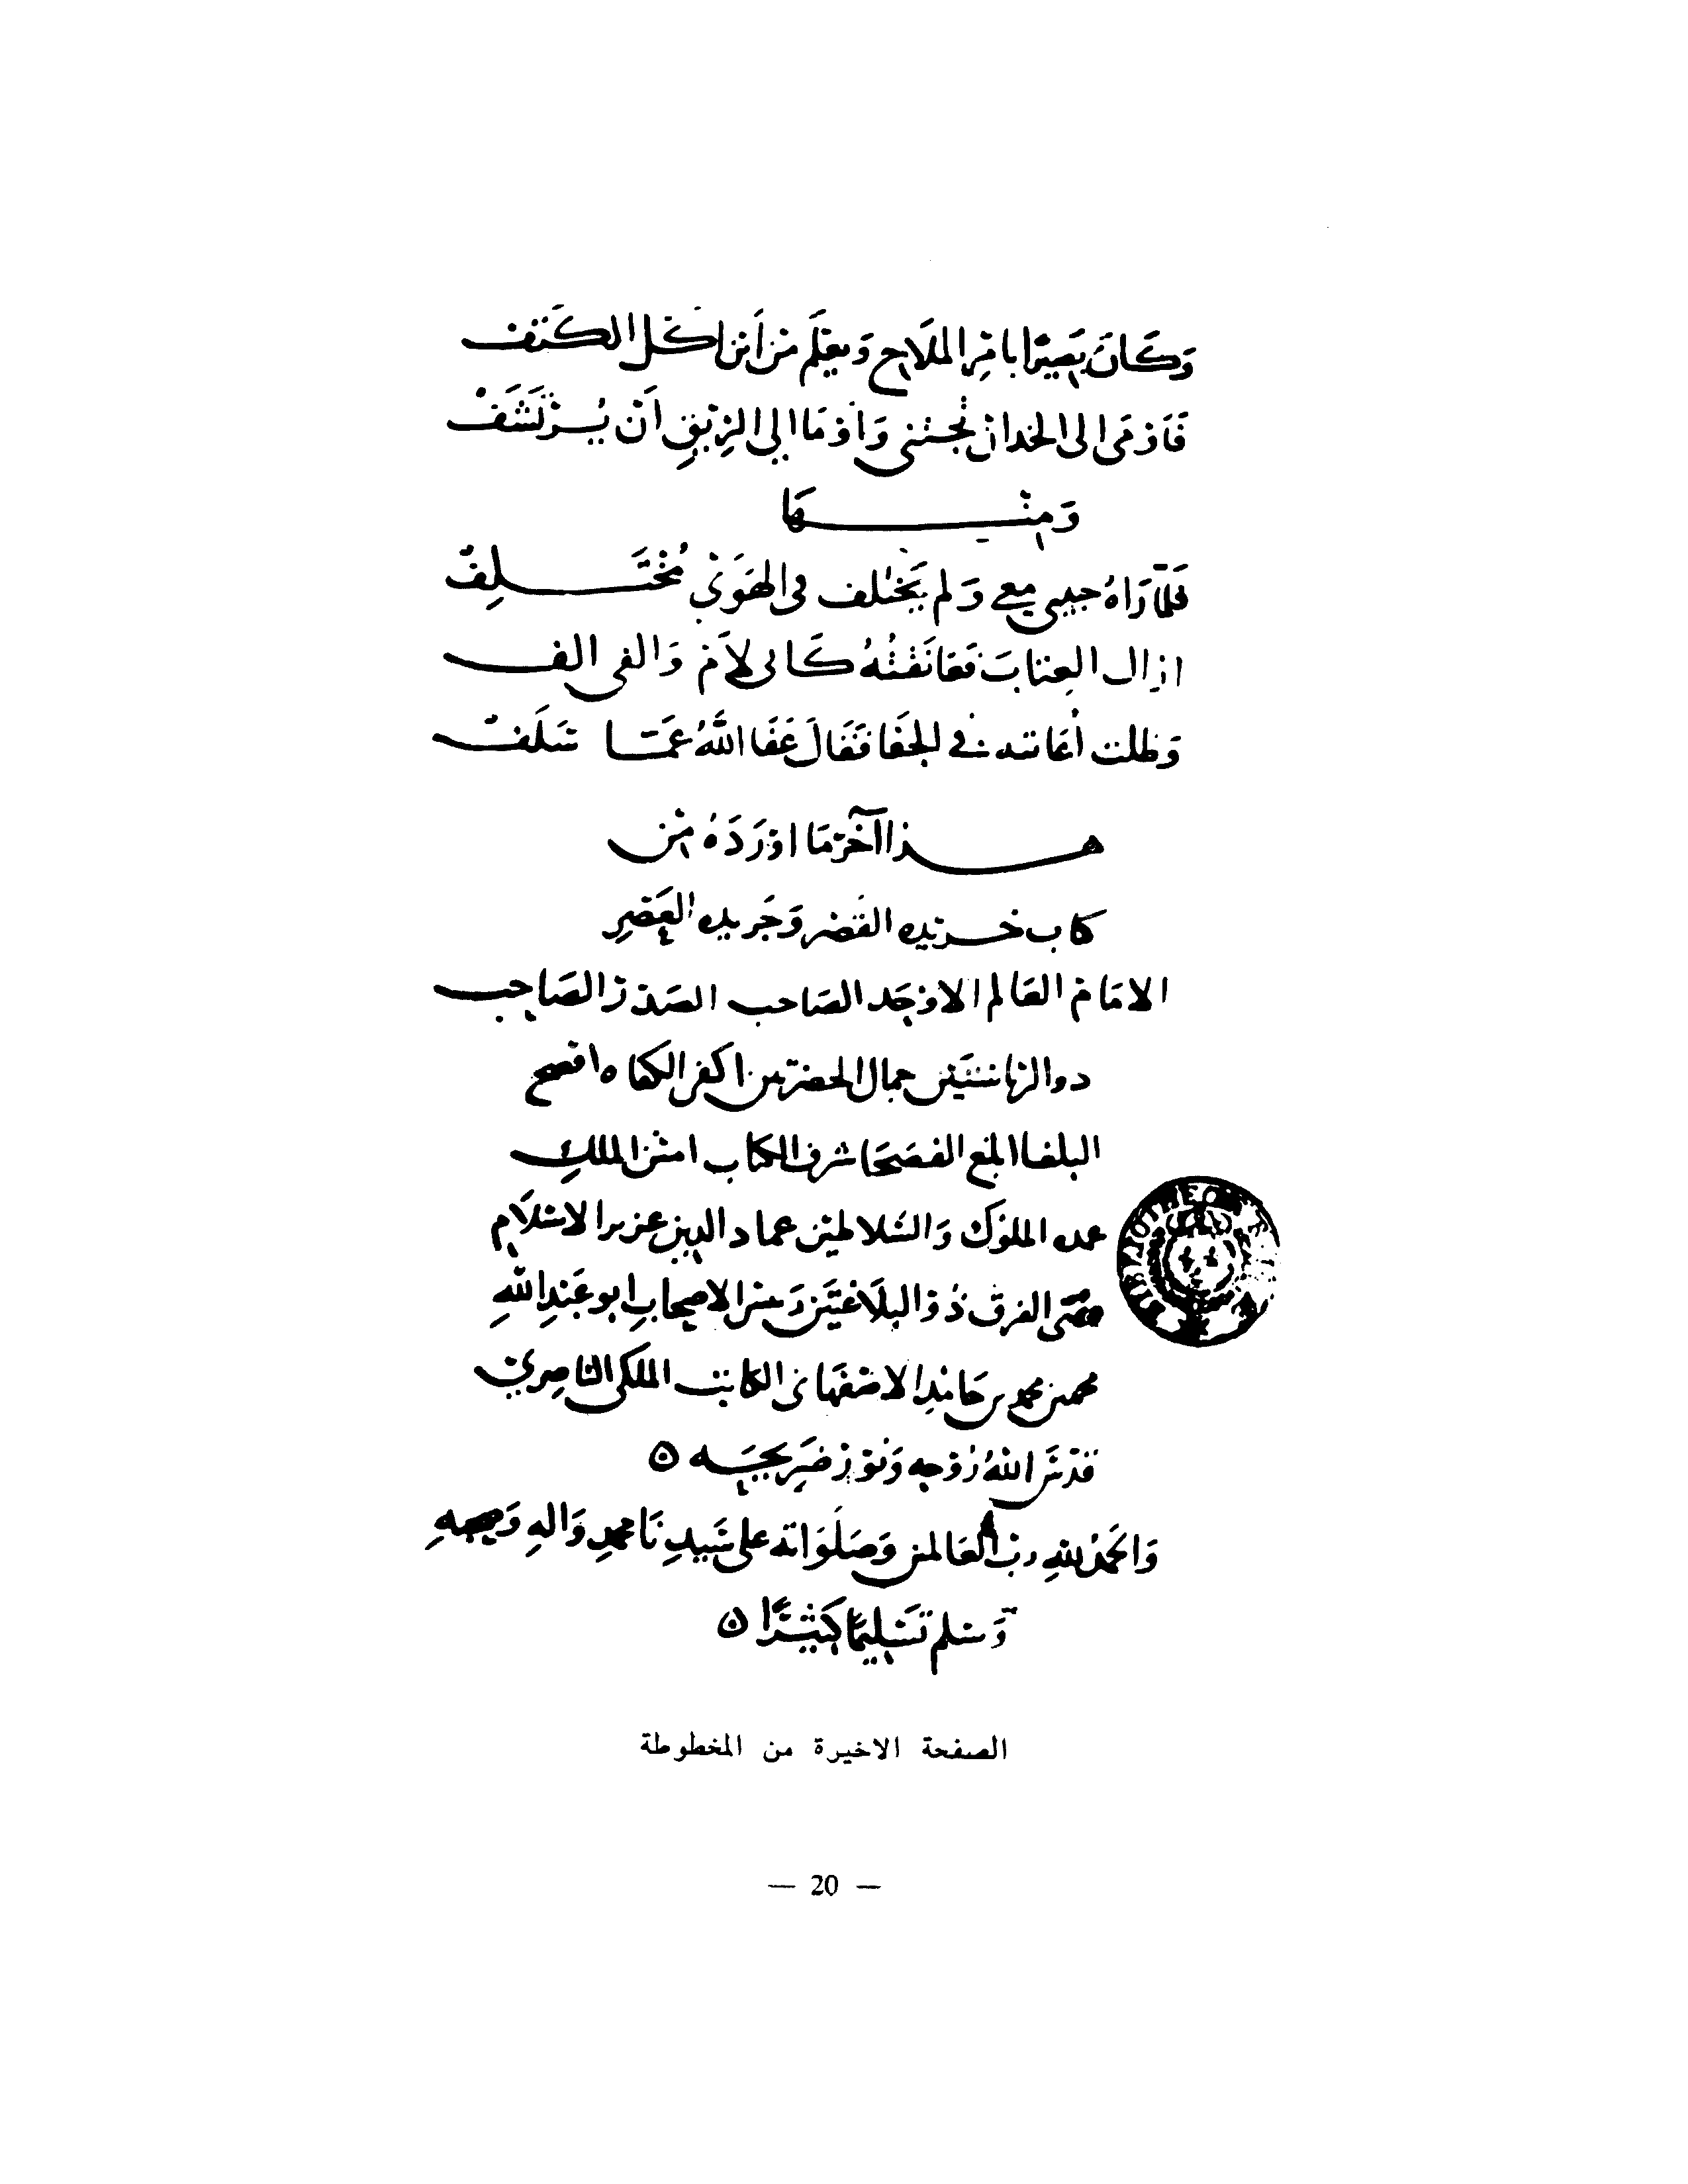 وَكَانَ بَصِيرًا بامْرِ المَلَاحِ وَيعْلَم مِنْ اَيْنَ اكْل الكَتِف
فَاوْمَى الى الخد ان يُجتنى وَاوْمَا الي الرِّيْقِ اَنْ يُرْتَشَفْ
وَمِنْهَا
فَلَمَّا رَاهُ حبيبي معي وَلم يَختلف في الهَوَى مُخْتَلِفْ
ازال العِتَابَ فَعَانَقْتُهُ كَانى لاَمْ وَالفى الف
وَظلت أعَاتبه في الجَفَا فَقَالَ عَفَا اللهُ عَمَّا سَلَفْ
هذا آخرُ مَا اوْرَدَهُ مِنْ
كتاب خريدة القَصْر وَجَريدة العَصْرِ
الامَامْ العَالم الاوْحَد الصَاحب الصَدْرْ الصَاحِب
ذو الرياستَيْن جمال الحضرتين اكفى الكفاه افصح
البلغا ابلغ الفصَحَا شرف الكتاب امين الملكِ
عمدة الملوْك وَالسَّلاطين عماد الدين عزيز الاسْلَامِ
الفرق ذُوْ البلَاغتَيْن الاصحابِ ابو عَبْدِ اللهِ
محمد بن محمد بن حَامْدِ الاصْفَهَانى الكاتب الملكى الناصِرِى
قدسَ اللهُ رُوْحه وَنوّرْ ضَرِيحَه ه
وَالحَمْدُ للهِ ربّ العَالمين وَصَلَوَاته على سَيدِنَا محمدٍ وَالهِ وَصحبهِ
وَسلم تَسْلِيمًا كَثيْرًا ه
الصفحة الاخيرة من المخطوطة
— 20 —